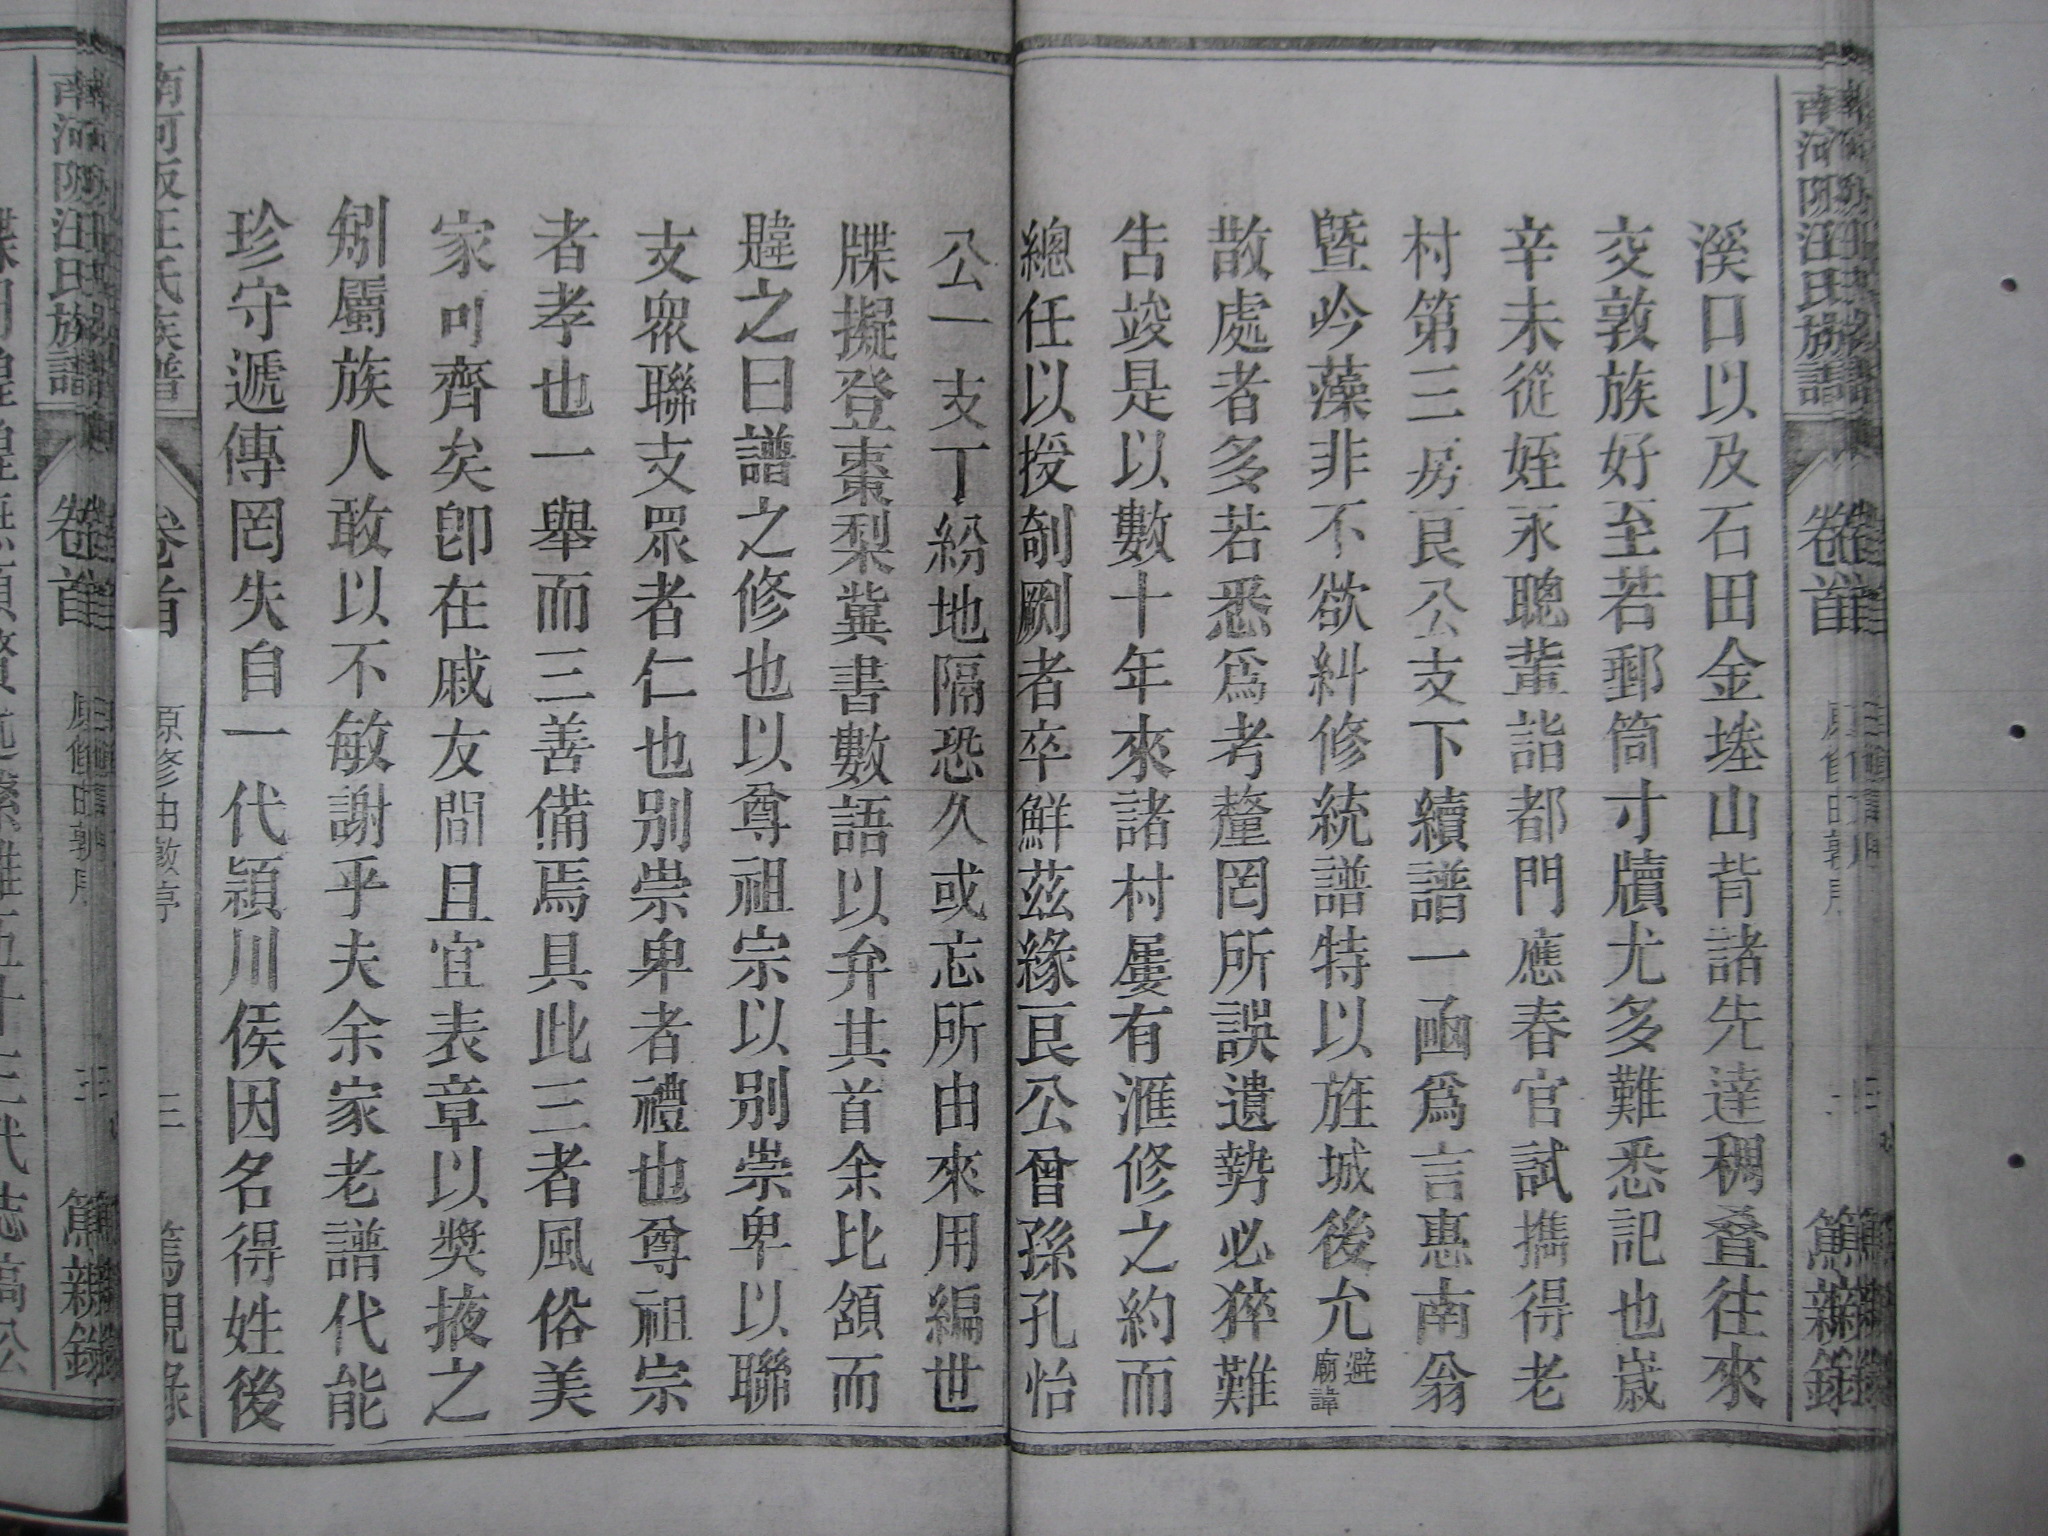 南河阪汪氏族譜
卷首
篤親錄
溪口以及石田金墪山背諸先達稠叠往來
交敦族好至若郵筒寸牘尤多難悉記也歲
辛未從姪永聰輩詣都門應春官試攜得老
村第三房艮公支下續譜一函爲言惠南翁
曁吟藻非不欲糾修統譜特以旌城後允避廟諱
散處者多若悉爲考釐罔所誤遺勢必猝難
告竣是以數十年來諸村屢有滙修之約而
總任以授剞劂者卒鮮茲緣艮公曾孫孔怡
公一支丁紛地隔恐久或忘所由來用編世
牒擬登棗梨冀書數語以弁其首余比頷而
韙之曰譜之修也以尊祖宗以别崇卑以聯
支眾聯支眾者仁也别崇卑者禮也尊祖宗
者孝也一舉而三善備焉具此三者風俗美
家可齊矣卽在戚友間且宜表章以獎掖之
矧屬族人敢以不敏謝乎夫余家老譜代能
珍守遞傳罔失自一代潁川侯因名得姓後
南河阪汪氏族譜
卷首
原修由敦序
三
篤親錄
南河阪汪氏族譜
卷首
三
篤親錄